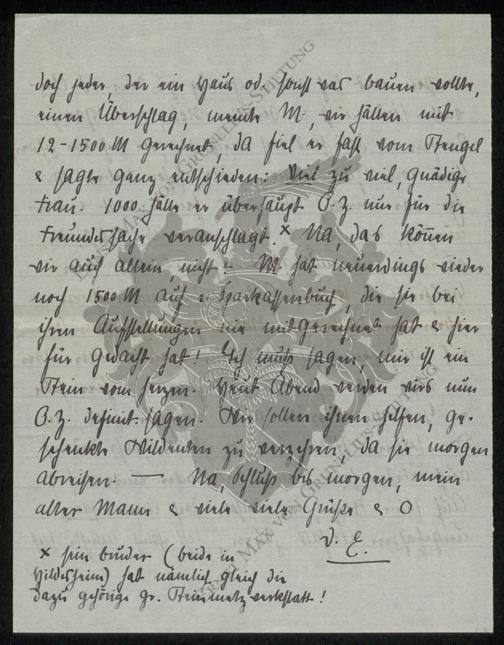 doch jeder der ein Haus od. sonst was bauen wollte,
einen Überschlag, meinte M., wir hätten mit
12-1500 M gerechnet, da fiel er fast vom Stengel
& sagte ganz entschieden: Viel zu viel, gnädige
Frau. 1000 hätte er überhaupt O.Z. nur für die
veranschlagt.× Na, das können
wir auch allein nicht – M. hat neuerdings wieder
noch 1500 M auf e. Sparkassenbuch, die sie bei
ihren Aufstellungen nie mitgerechnet hat & hier
für gedacht hat! Ich muss sagen, mir ist ein
Stein vom Herzen. Heut Abend werden wirs nun
O.Z. definit. sagen. Wir sollen ihnen helfen, ge-
schenkte Wildenten zu verzehren, da sie morgen
abreisen. — Na, Schluss bis morgen, mein
alter Mann & viele viele Grüsse & O
D. E.
× sein Bruder (beide in
Hildesheim) hat nämlich gleich die
dazu gehörige gr. Steinmetzwerkstatt!
MAX VON GROTE
STIFTUNG